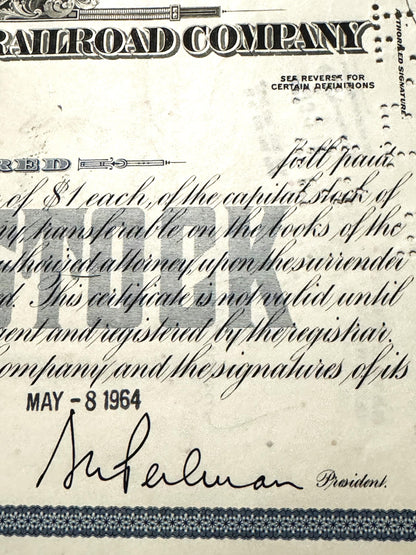 RAILROAD COMPANY
AUTHORIZED SIGNATURE
SEE REVERSE FOR
CERTAIN DEFINITIONS
RED
full paid
of $1 each, of the capital stock of
transferable on the books of the
authorized attorney, upon the surrender
This certificate is not valid until
and registered by the registrar.
Company and the signatures of its
STOCK
MAY - 8 1964
Perlman
President.